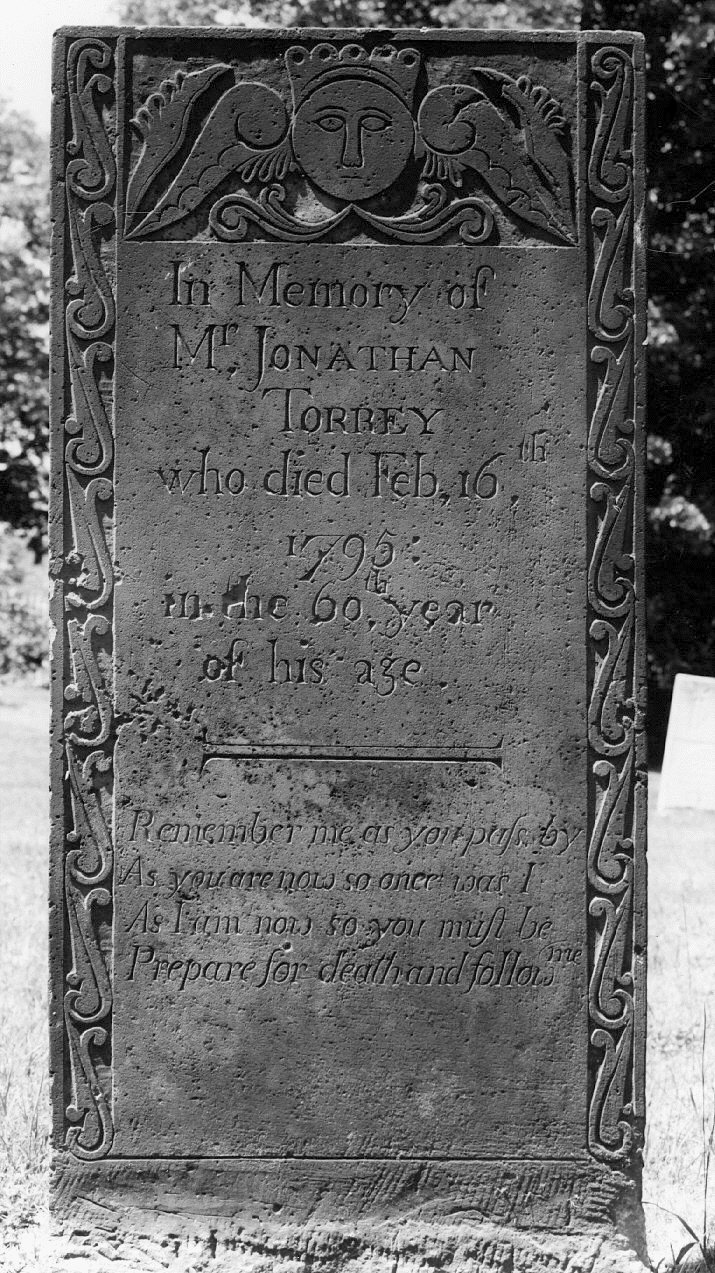 In Memory of
Mr. JONATHAN
TORREY
who died Feb. 16th
1795:
in the 60th. year
of his age.
Remember me as you paſs by
As you are now so once was I
As I am now so you muſt be
Prepare for death and follow me